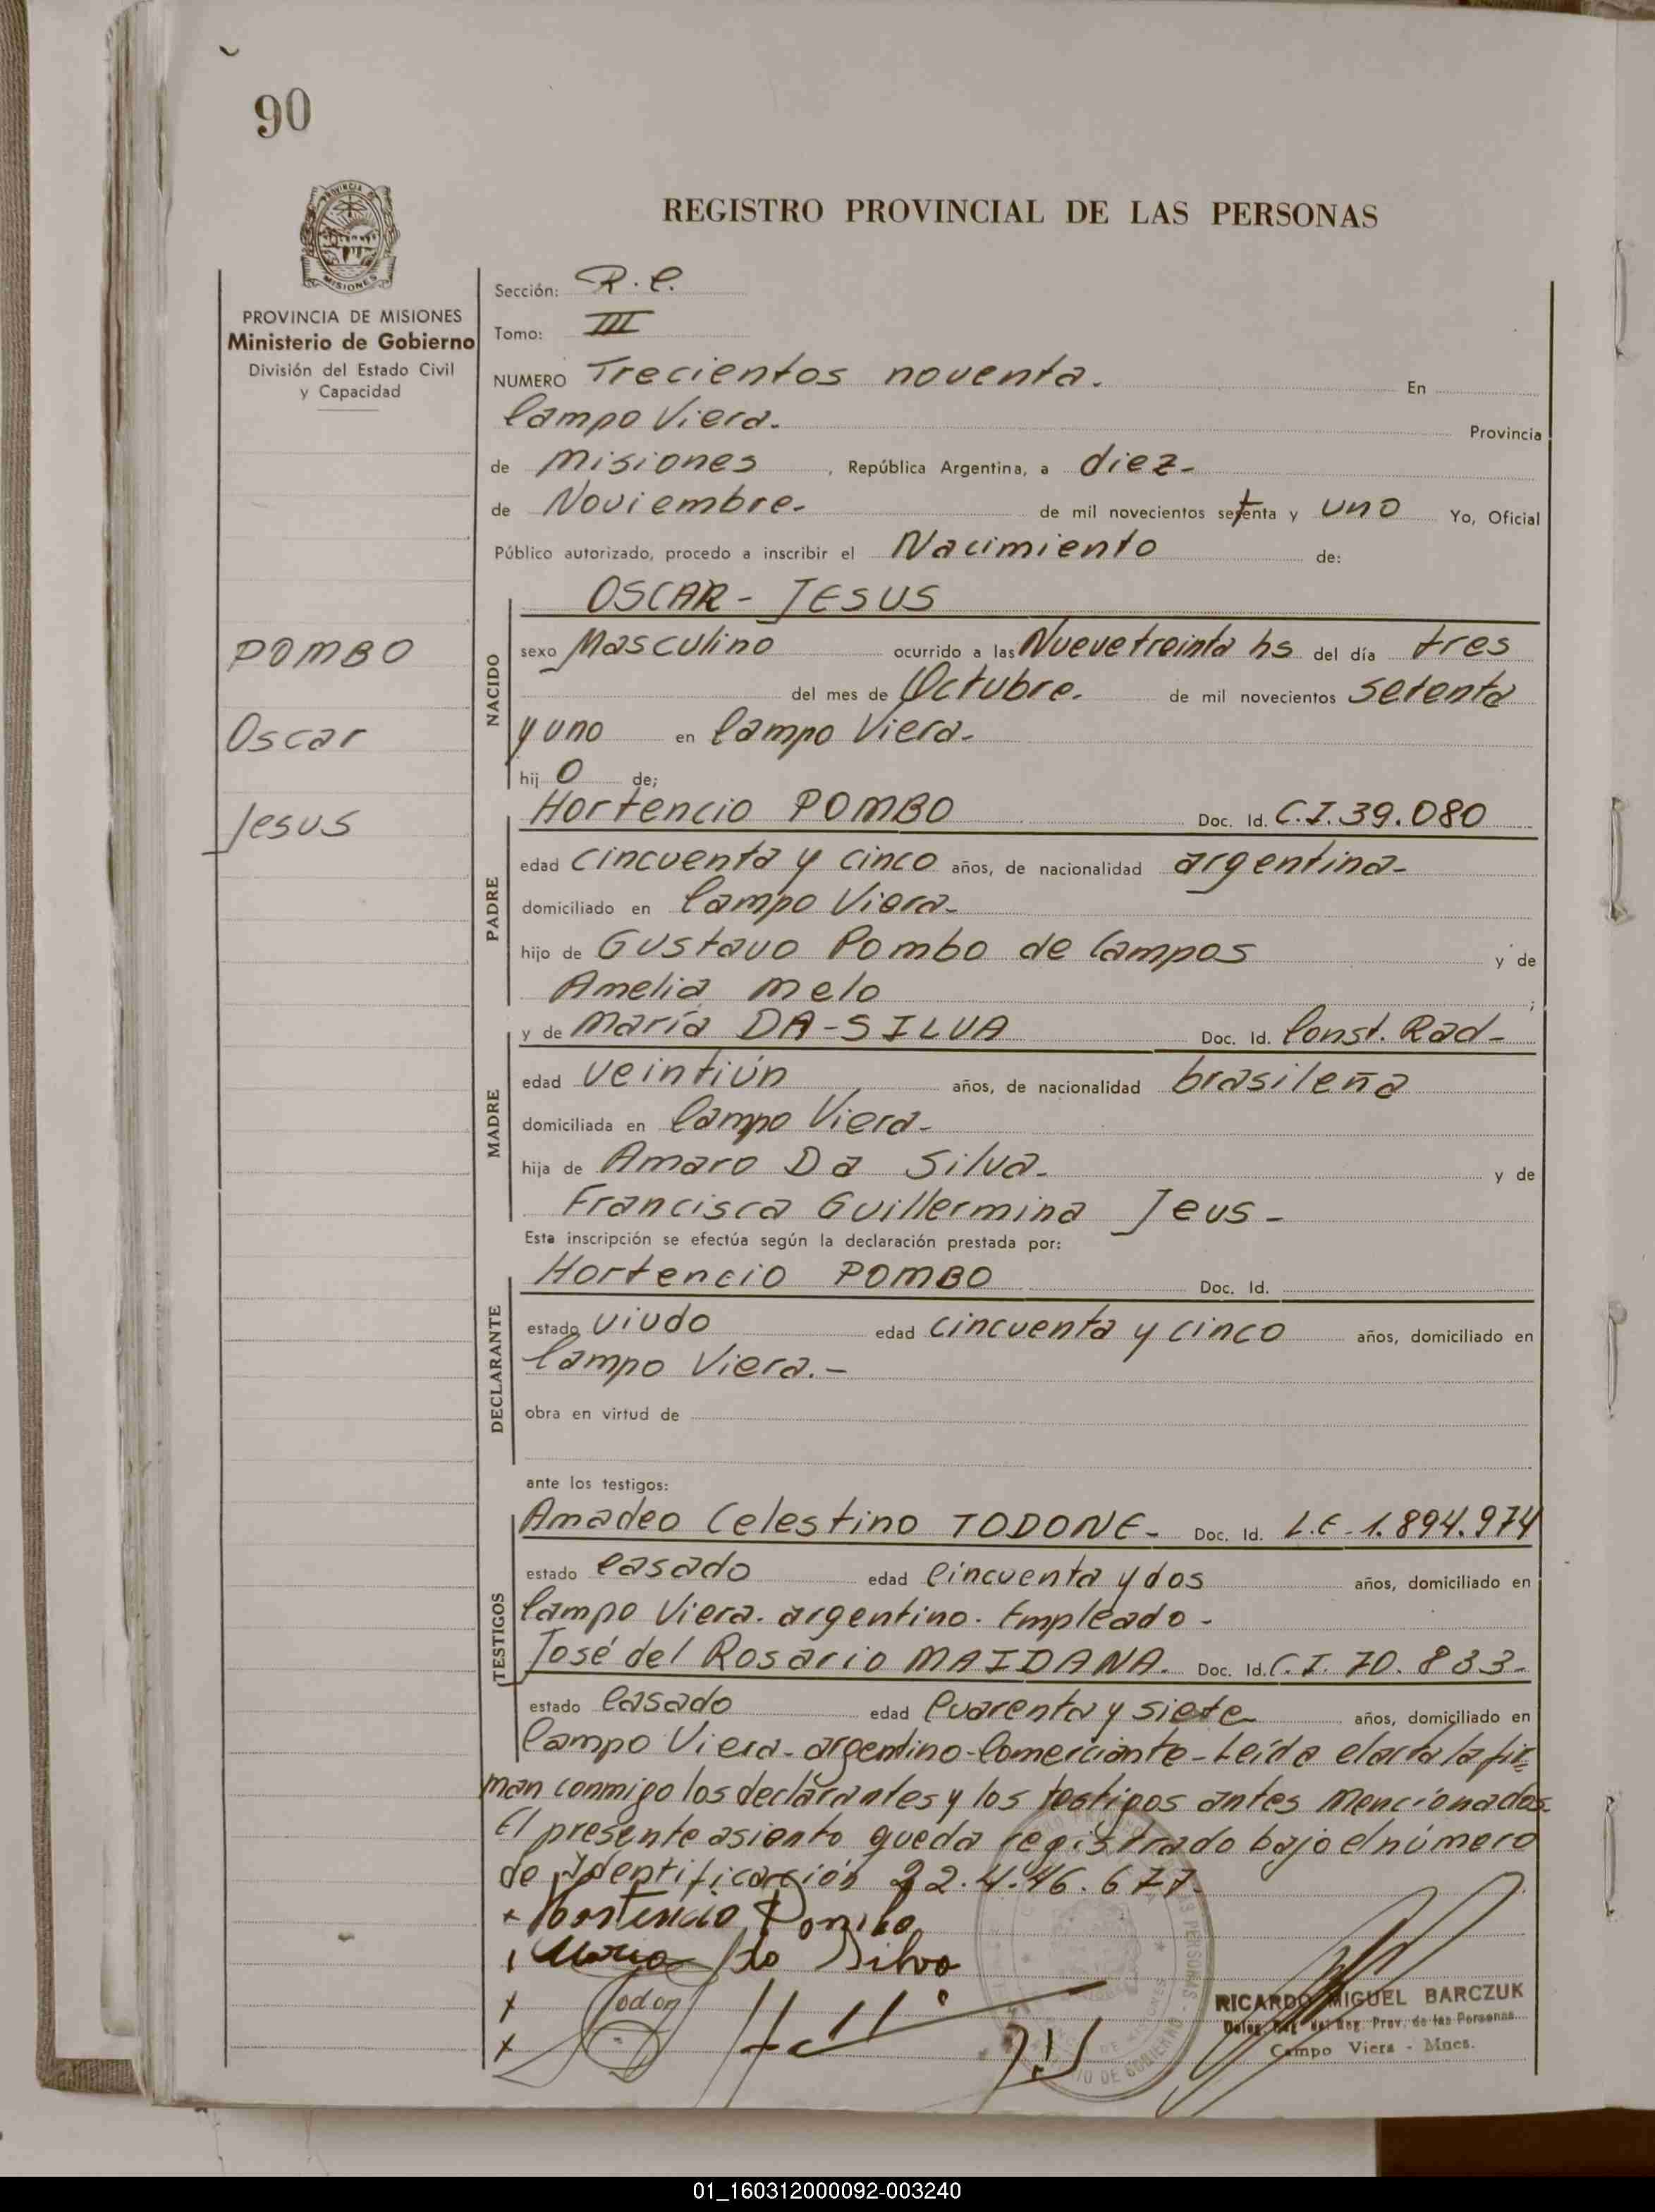 90
PROVINCIA DE MISIONES
Ministerio de Gobierno
División del Estado Civil
y Capacidad
POMBO
Oscar
Jesus
REGISTRO PROVINCIAL DE LAS PERSONAS
Sección: R.C.
Tomo: III
NUMERO Trecientos noventa. En
Campo Viera. Provincia
de Misiones, República Argentina, a diez-
de Noviembre. de mil novecientos setenta y uno Yo, Oficial
Público autorizado, procedo a inscribir el Nacimiento de:
OSCAR - JESUS
NACIDO
sexo Masculino ocurrido a las Nueve treinta hs del día tres
del mes de Octubre. de mil novecientos setenta
y uno en Campo Viera.
hij o de;
Hortencio POMBO Doc. Id. C.I. 39.080
PADRE
edad cincuenta y cinco años, de nacionalidad argentina-
domiciliado en Campo Viera-
hijo de Gustavo Pombo de Campos y de
Amelia Melo ;
y de María DA-SILVA Doc. Id. Const. Rad-
MADRE
edad veintiún años, de nacionalidad brasileña
domiciliada en Campo Viera-
hija de Amaro Da Silva. y de
Francisca Guillermina Jeus-
Esta inscripción se efectúa según la declaración prestada por:
Hortencio POMBO Doc. Id.
DECLARANTE
estado viudo edad cincuenta y cinco años, domiciliado en
Campo Viera.-
obra en virtud de
ante los testigos:
Amadeo Celestino TODONE- Doc. Id. L.E-1.894.974
TESTIGOS
estado casado edad cincuenta y dos años, domiciliado en
Campo Viera. argentino. Empleado-
José del Rosario MAIDANA. Doc. Id. C.I. 70.833-
estado casado edad cuarenta y siete años, domiciliado en
Campo Viera-argentino-Comerciante-Leída el acta la fir=
man conmigo los declarantes y los testigos antes mencionados.
El presente asiento queda registrado bajo el número
de Identificación 22.446.677.
Hortencio Pombo
Maria da Silva
Todon
RICARDO MIGUEL BARCZUK
Reg. Prov. de las Personas
Campo Viera - Mnes.
01_160312000092-003240